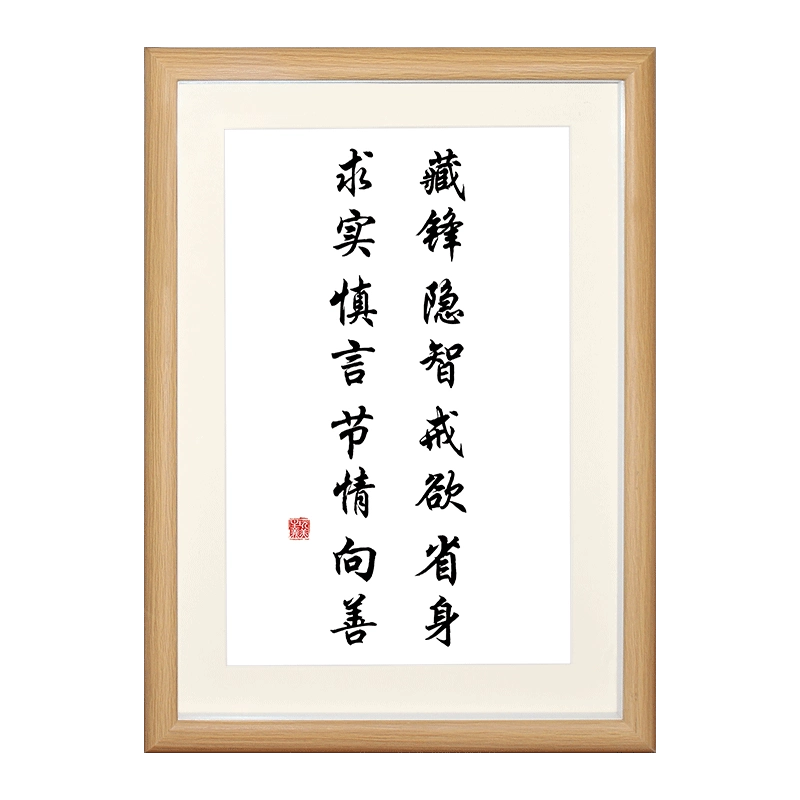 藏锋隐智戒欲省身
求实慎言节情向善